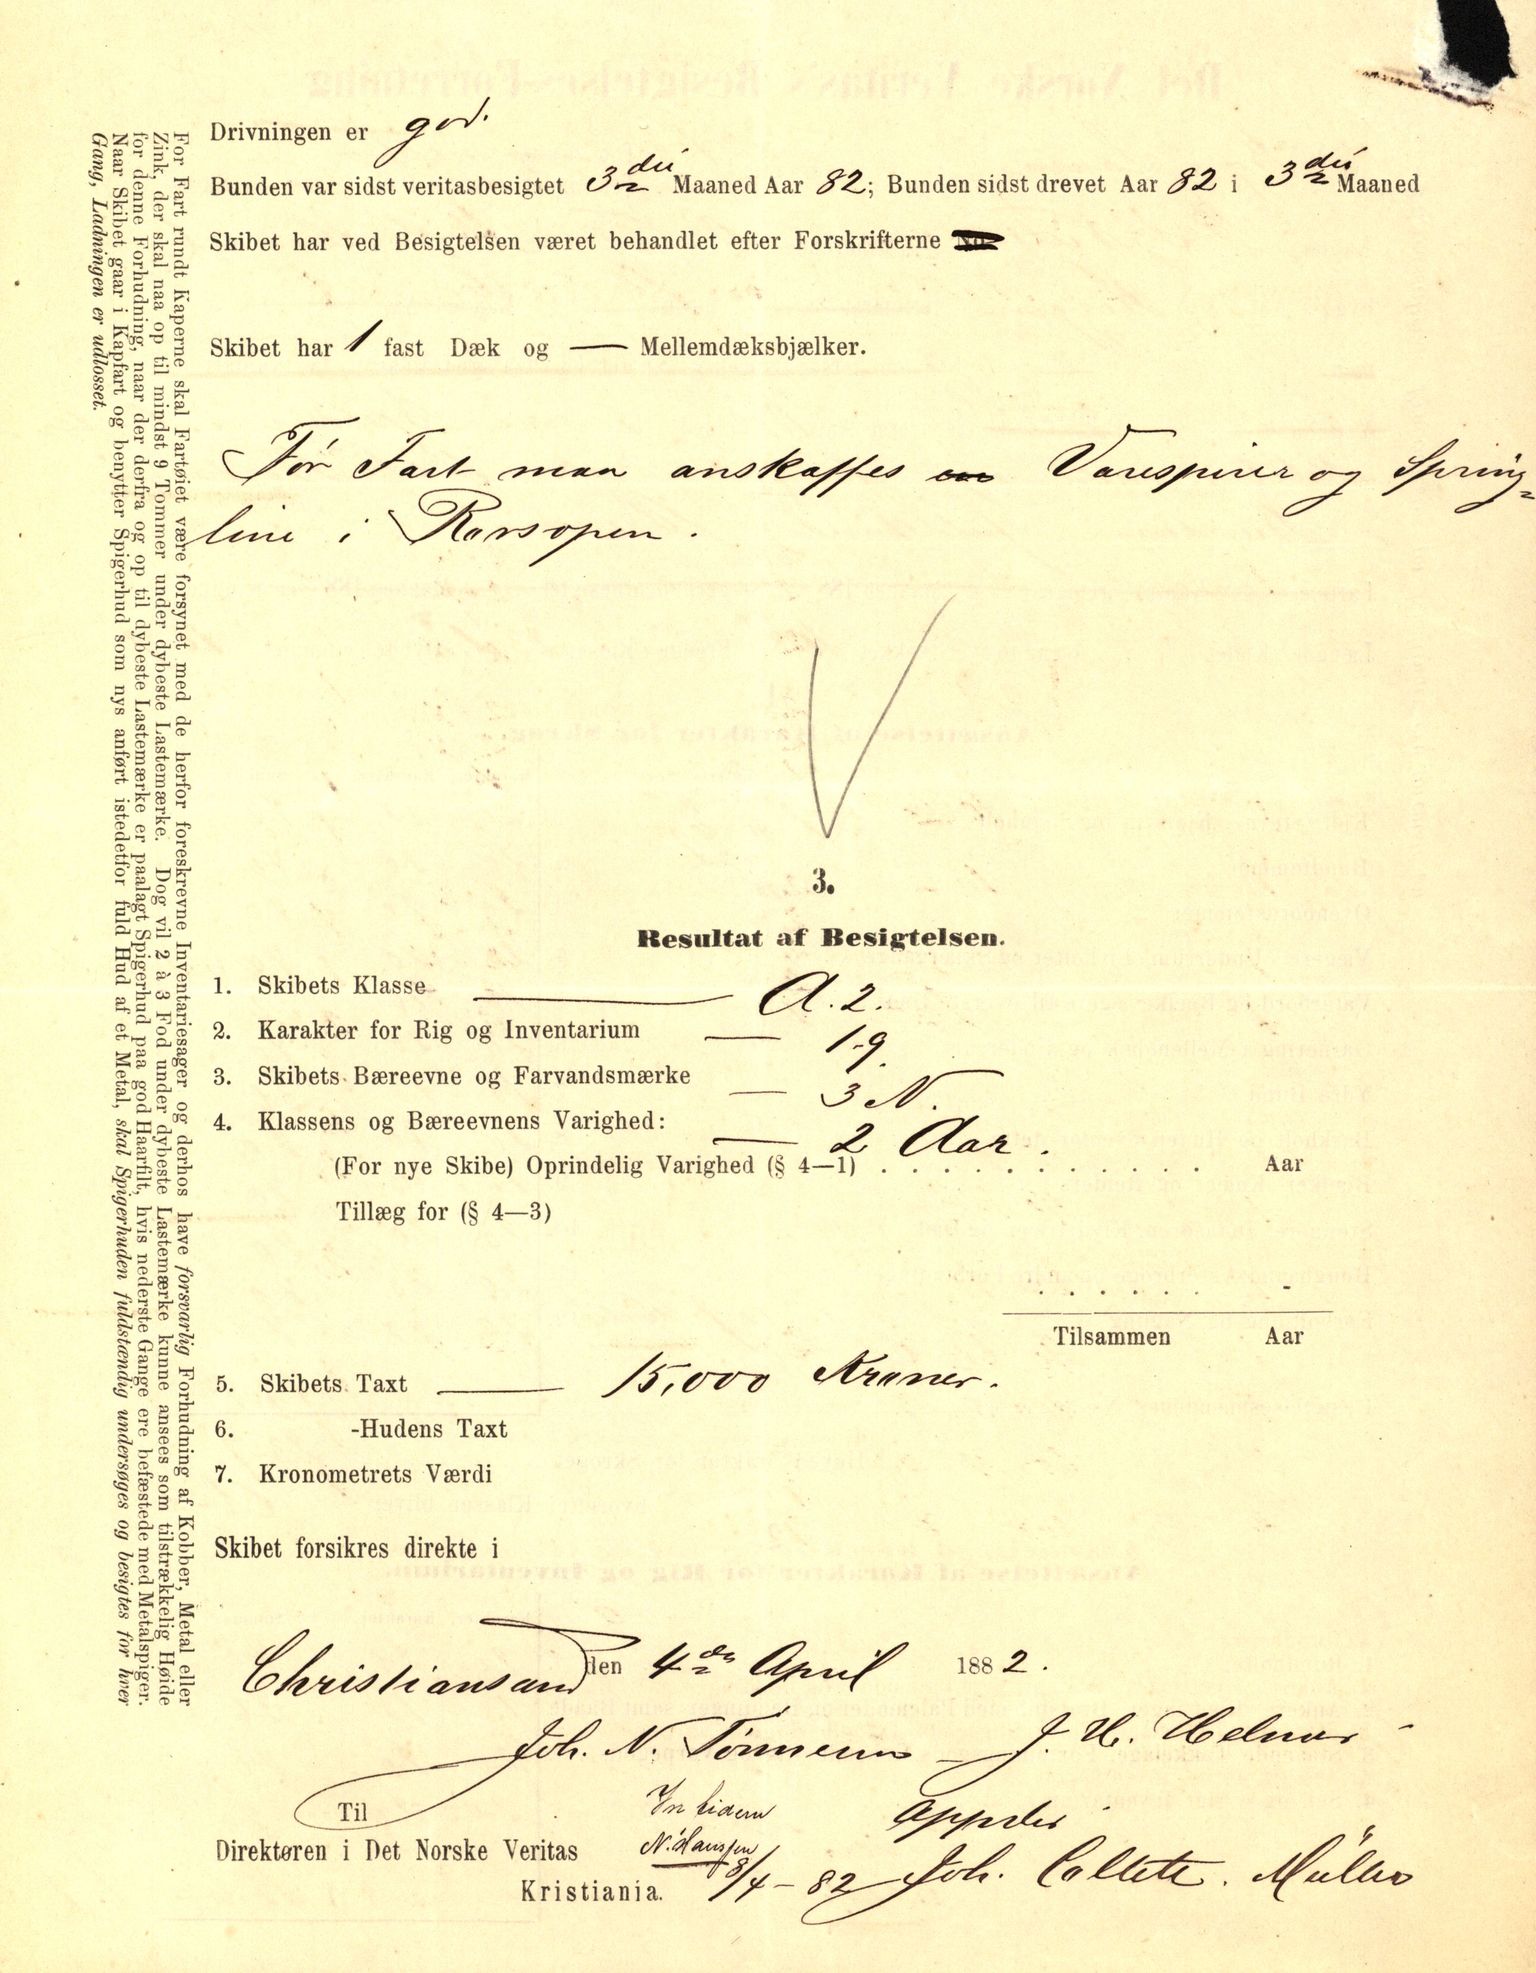 Drivningen er god.
Bunden var sidst veritasbesigtet 3die Maaned Aar 82; Bunden sidst drevet Aar 82 i 3die Maaned
Skibet har ved Besigtelsen været behandlet efter Forskrifterne No.
Skibet har 1 fast Dæk og — Mellemdæksbjælker.
Før Fart maa anskaffes en Varespirer og Spring-
line i Reservopen.
3.
Resultat af Besigtelsen.
1. Skibets Klasse — A. 2.
2. Karakter for Rig og Inventarium — 1.9.
3. Skibets Bæreevne og Farvandsmærke — 3 N.
4. Klassens og Bæreevnens Varighed: — 2 Aar.
(For nye Skibe) Oprindelig Varighed (§ 4—1) . . . . . . . . . . . . Aar
Tillæg for (§ 4—3)
. . . . . . -
Tilsammen Aar
5. Skibets Taxt — 15,000 Kroner.
6. -Hudens Taxt
7. Kronometrets Værdi
Skibet forsikres direkte i
Christiansand den 4de April 1882.
Joh. N. Tønnesen J. H.
Til
Direktøren i Det Norske Veritas
Kristiania.
In fidem
N. Hanssen
8/4 - 82
Appdes
Joh. Collett. Müller
For Fart rundt Kaperne skal Fartøiet være forsynet med de herfor foreskrevne Inventariesager og derhos have forsvarlig Forhudning af Kobber, Metal eller
Zink, der skal naa op til mindst 9 Tommer under dybeste Lastemærke. Dog vil 2 à 3 Fod under dybeste Lastemærke kunne ansees som tilstrækkelig Høide
for denne Forhudning, naar der derfra og op til dybeste Lastemærke er paalagt Spigerhud paa god Haarfilt, hvis nederste Gange ere befæstede med Metalspiger.
Naar Skibet gaar i Kapfart og benytter Spigerhud som nys anført istedetfor fuld Hud af et Metal, skal Spigerhuden fuldstændig undersøges og besigtes for hver
Gang, Ladningen er udlosset.